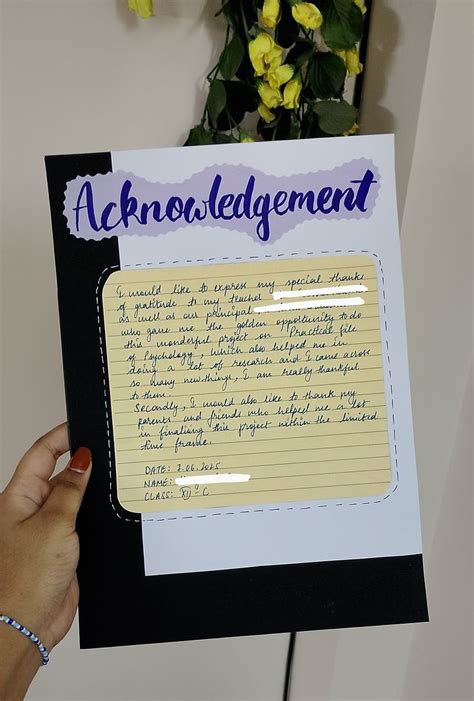 Acknowledgement
I would like to express my special thanks
of gratitude to my teacher
as well as our principal
who gave me the golden opportunity to do
this wonderful project on Practical file
of Psychology, which also helped me in
doing a lot of research and I came across
so many new things, I are really thankful
to them.
Secondly, I would also like to thank my
parents and friends who helped me a lot
in finalising this project within the limited
time frame.
DATE: 2.06.2025
NAME:
CLASS: XII-C